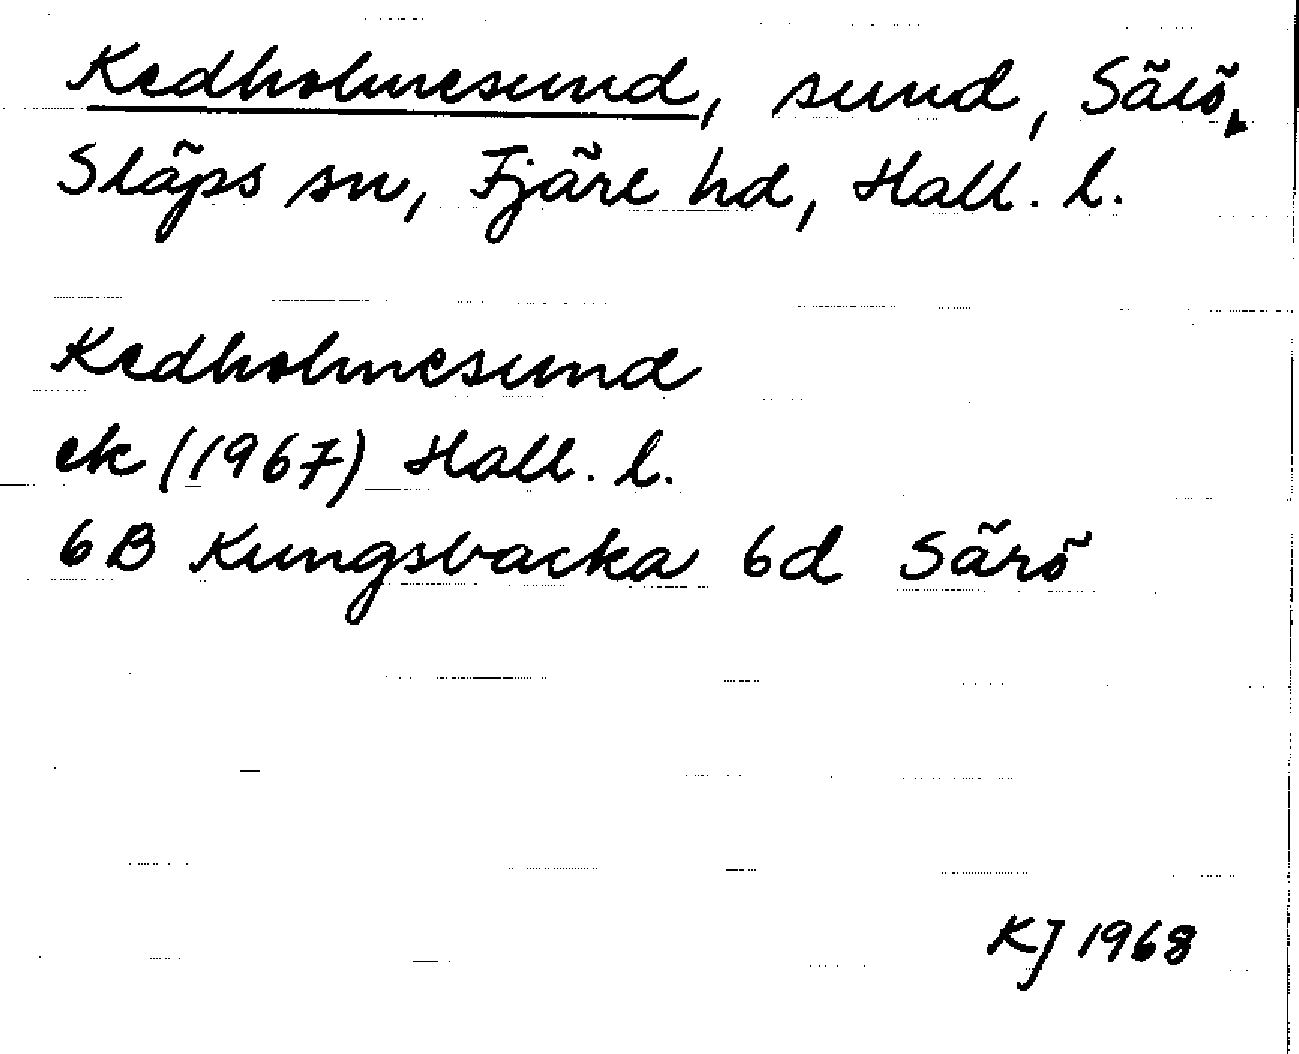 Kedholmesund, sund, Särö,
Släps sn, Fjäre hd, Hall. l.
Kedholmesund
ek (1967) Hall. l.
6B Kungsbacka 6d Särö
KJ 1968